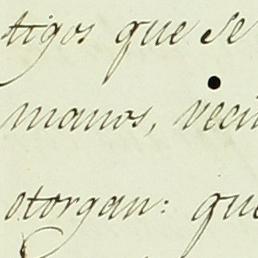 tigos que se
manos, veci
otorgan: que